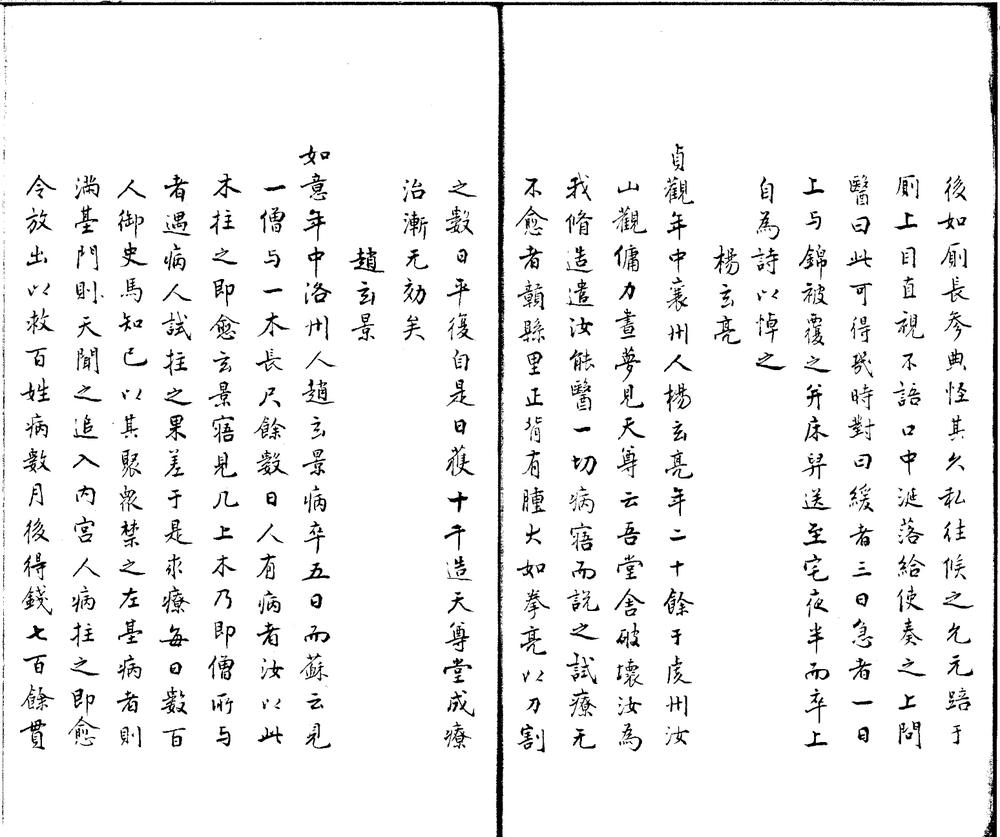 後如厠長參典怪其久私往候之允元踣于
厠上目直視不語口中涎落給使奏之上問
醫曰此可得幾時對曰緩者三日急者一日
上与錦被覆之并床舁送至宅夜半而卒上
自為詩以悼之
楊玄亮
貞觀年中襄州人楊玄亮年二十餘于虔州汶
山觀傭力晝夢見天尊云吾堂舎破壞汝為
我脩造遣汝能醫一切病寤而説之試療无
不愈者贛縣里正背有腫大如拳亮以刀割
之數日平復自是日獲十千造天尊堂成療
治漸无効矣
趙玄景
如意年中洛州人趙玄景病卒五日而蘇云見
一僧与一木長尺餘教曰人有病者汝以此
木拄之即愈玄景寤見几上木乃即僧所与
者遇病人試拄之果差于是求療每日數百
人御史馬知已以其聚衆禁之左䑓病者則
滿䑓門則天聞之追入内宮人病拄之即愈
令放出以救百姓病數月後得錢七百餘貫